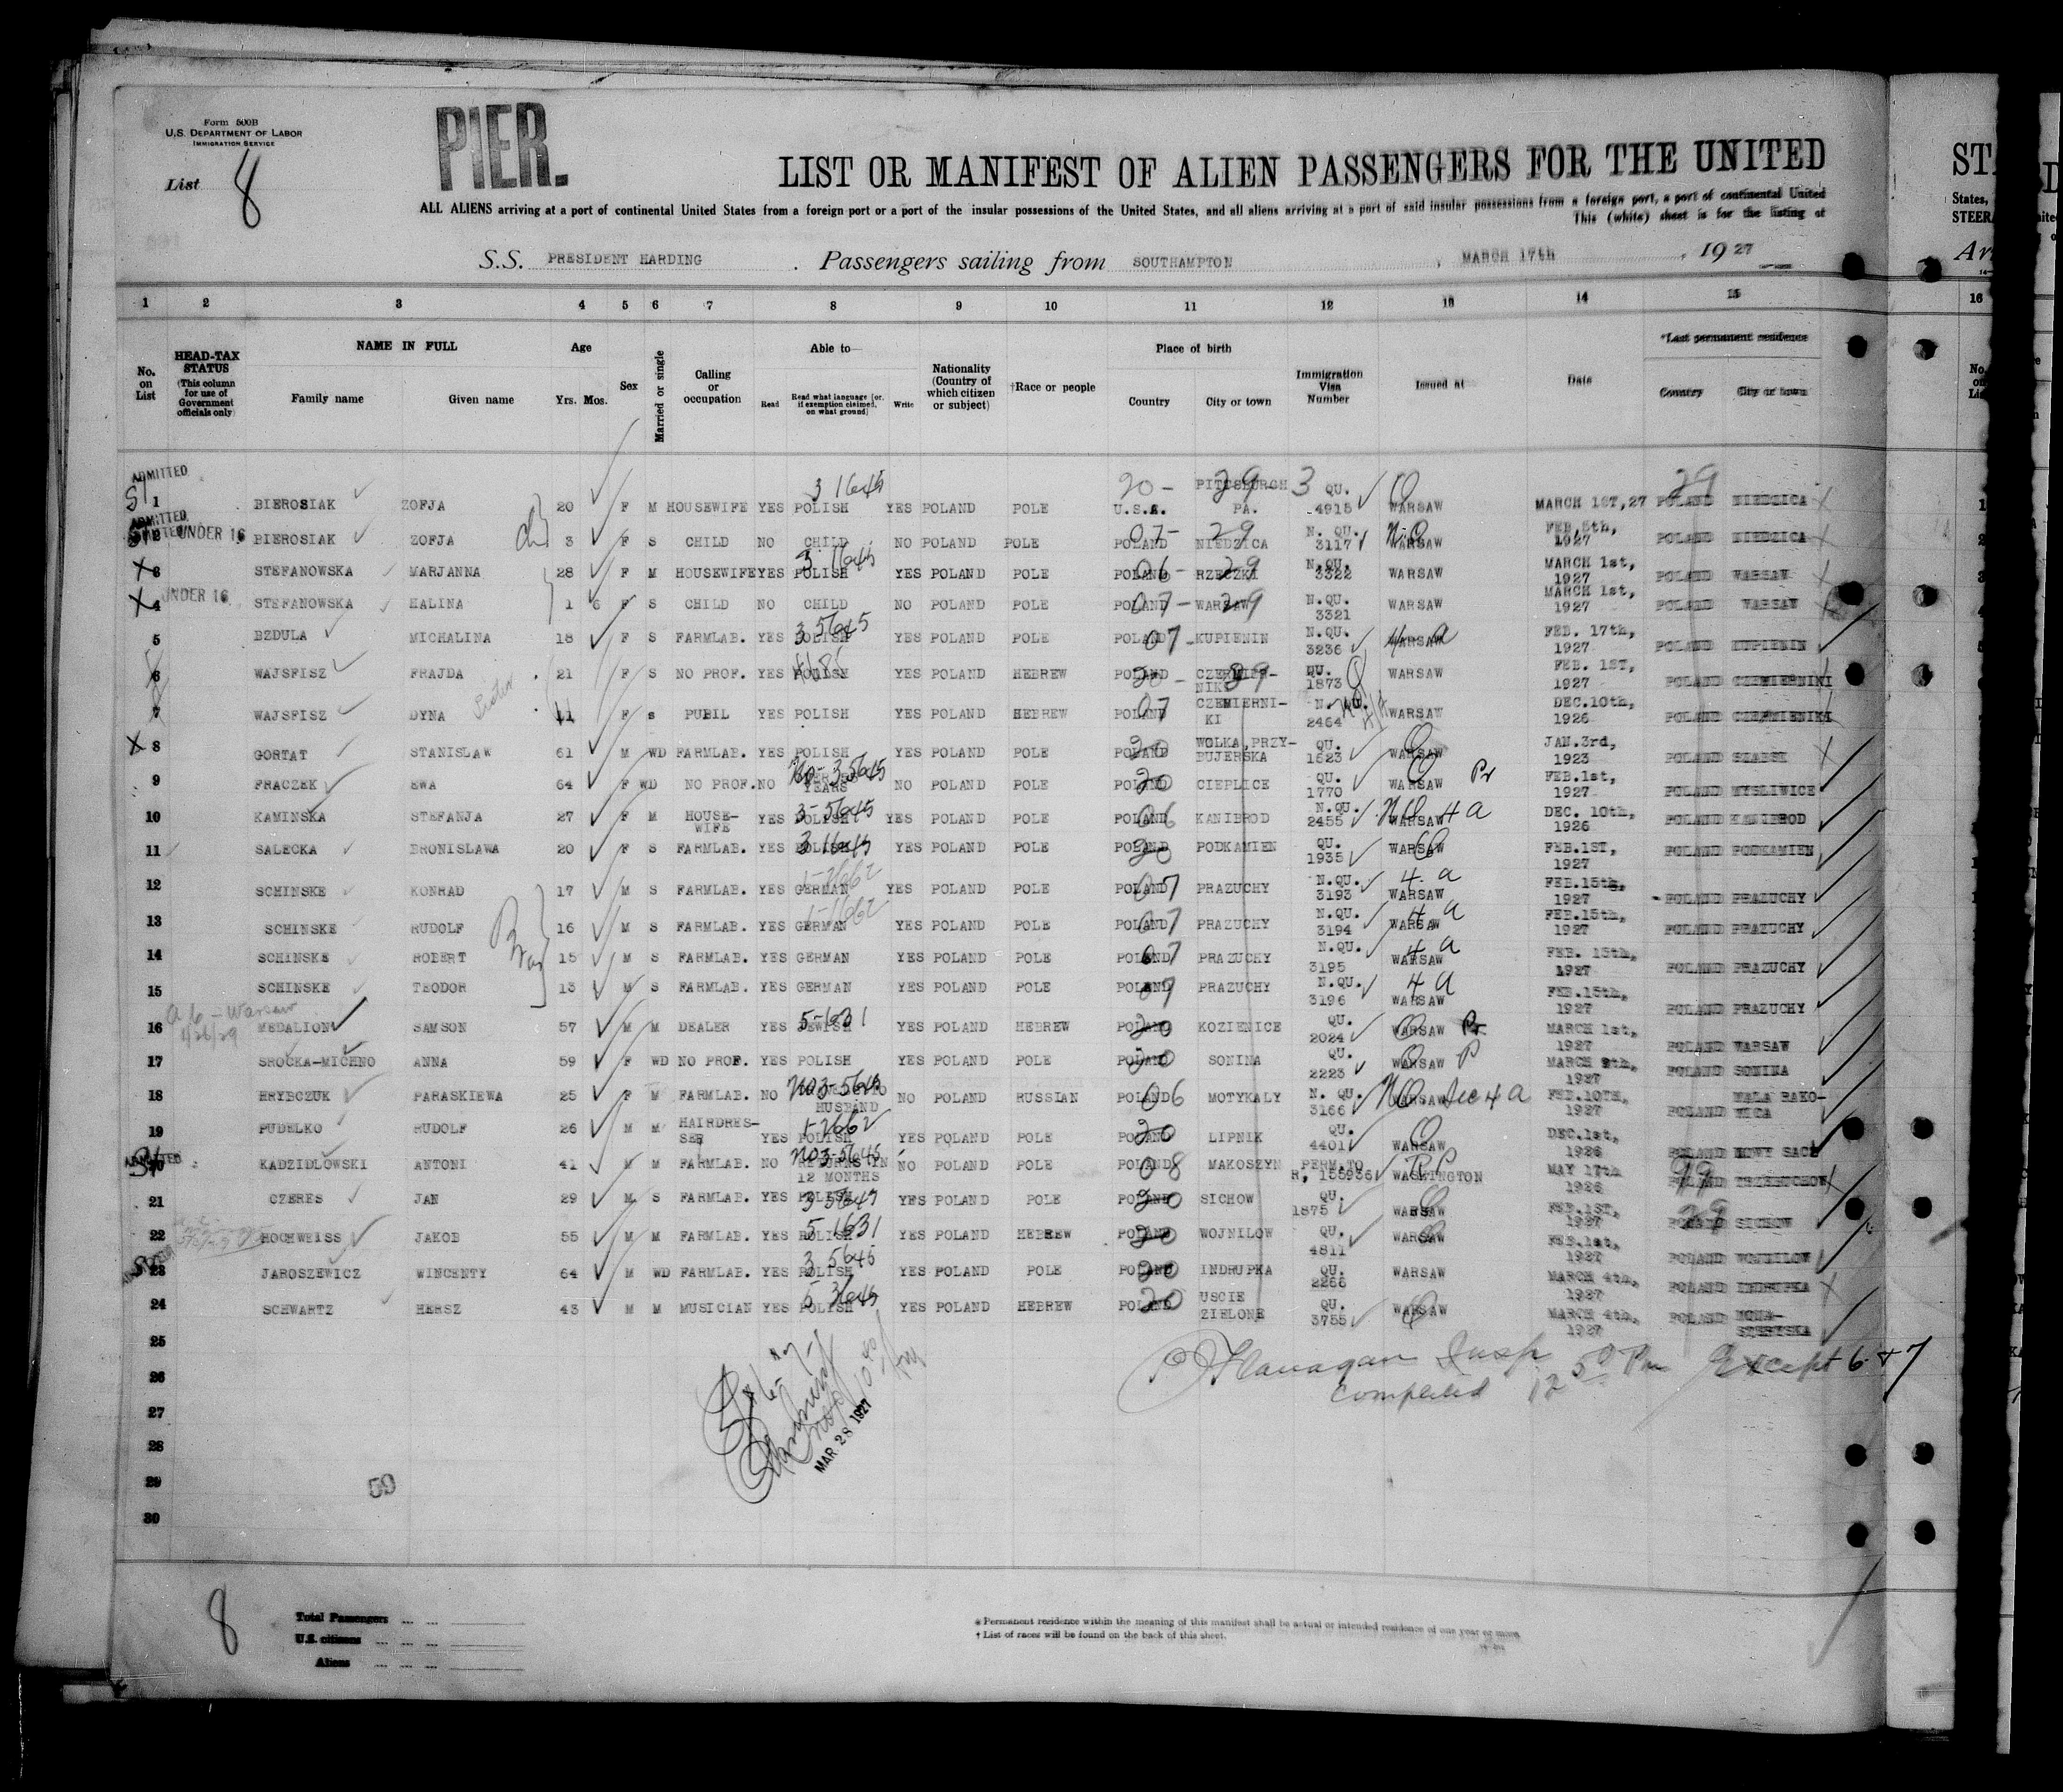 Form 500B
U.S. DEPARTMENT OF LABOR
IMMIGRATION SERVICE
List 8
PIER.
LIST OR MANIFEST OF ALIEN PASSENGERS FOR THE UNITED
ALL ALIENS arriving at a port of continental United States from a foreign port or a port of the insular possessions of the United States, and all aliens arriving at a port of said insular possessions from a foreign port, a port of continental United
This (white) sheet is for the listing of
S.S. PRESIDENT HARDING . Passengers sailing from SOUTHAMPTON , MARCH 17th , 19 27
1 2 3 4 5 6 7 8 9 10 11 12 13 14 15
No. on List
HEAD-TAX STATUS (This column for use of Government officials only)
NAME IN FULL
Family name Given name
Age
Yrs. Mos.
Sex
Married or single
Calling or occupation
Able to
Read Read what language (or, if exemption claimed, on what ground) Write
Nationality (Country of which citizen or subject)
†Race or people
Place of birth
Country City or town
Immigration Visa Number
Issued at
Date
*Last permanent residence
Country City or town
ADMITTED 1 BIEROSIAK ZOFJA 20 F M HOUSEWIFE YES POLISH YES POLAND POLE U.S.A. PITTSBURGH PA. QU. 4915 WARSAW MARCH 1ST,27 POLAND NIEDZICA
ADMITTED 2 UNDER 16 BIEROSIAK ZOFJA 3 F S CHILD NO CHILD NO POLAND POLE POLAND NIEDZICA N. QU. 3117 WARSAW FEB,5th, 1927 POLAND NIEDZICA
3 STEFANOWSKA MARJANNA 28 F M HOUSEWIFE YES POLISH YES POLAND POLE POLAND RZECZKI N.QU. 3322 WARSAW MARCH 1st, 1927 POLAND WARSAW
4 UNDER 16 STEFANOWSKA HALINA 1 6 F S CHILD NO CHILD NO POLAND POLE POLAND WARSAW N.QU. 3321 WARSAW MARCH 1st, 1927 POLAND WARSAW
5 BZDULA MICHALINA 18 F S FARMLAB. YES POLISH YES POLAND POLE POLAND KUPIENIN N.QU. 3236 WARSAW FEB. 17th, 1927 POLAND KUPIENIN
6 WAJSFISZ FRAJDA 21 F S NO PROF. YES POLISH YES POLAND HEBREW POLAND CZERMIER-NIKI QU. 1873 WARSAW FEB. 1ST, 1927 POLAND CZEMIERNIKI
7 WAJSFISZ DYNA 11 F S PUBIL YES POLISH YES POLAND HEBREW POLAND CZEMIERNI-KI N.QU. 2464 WARSAW DEC.10th, 1926 POLAND CZERMIENIKI
8 GORTAT STANISLAW 61 M WD FARMLAB. YES POLISH YES POLAND POLE POLAND WOLKA,PRZY-BUJERSKA QU. 1523 WARSAW JAN.3rd, 1923 POLAND
9 FRACZEK EWA 64 F WD NO PROF. NO YEARS NO POLAND POLE POLAND CIEPLICE QU. 1770 WARSAW FEB.1st, 1927 POLAND MYSLIWICE
10 KAMINSKA STEFANJA 27 F M HOUSE-WIFE YES POLISH YES POLAND POLE POLAND KANIBROD N.QU. 2455 WARSAW 4 a DEC. 10th, 1926 POLAND KANIBROD
11 SALECKA BRONISLAWA 20 F S FARMLAB. YES POLISH YES POLAND POLE POLAND PODKAMIEN QU. 1935 WARSAW FEB.1ST, 1927 POLAND PODKAMIEN
12 SCHINSKE KONRAD 17 M S FARMLAB. YES GERMAN YES POLAND POLE POLAND PRAZUCHY N.QU. 3193 4 a WARSAW FEB.15th, 1927 POLAND PRAZUCHY
13 SCHINSKE RUDOLF 16 M S FARMLAB. YES GERMAN YES POLAND POLE POLAND PRAZUCHY N.QU. 3194 4 a WARSAW FEB.15th, 1927 POLAND PRAZUCHY
14 SCHINSKE ROBERT 15 M S FARMLAB. YES GERMAN YES POLAND POLE POLAND PRAZUCHY N.QU. 3195 4 a WARSAW FEB. 15th, 1927 POLAND PRAZUCHY
15 SCHINSKE TEODOR 13 M S FARMLAB. YES GERMAN YES POLAND POLE POLAND PRAZUCHY N.QU. 3196 4 a WARSAW FEB.15th, 1927 POLAND PRAZUCHY
16 MEDALION SAMSON 57 M M DEALER YES JEWISH YES POLAND HEBREW POLAND KOZIENICE QU. 2024 WARSAW MARCH 1st, 1927 POLAND WARSAW
17 SROCKA-MICHNO ANNA 59 F WD NO PROF. YES POLISH YES POLAND POLE POLAND SONINA QU. 2223 WARSAW MARCH 9th, 1927 POLAND SONINA
18 HRYBCZUK PARASKIEWA 25 F M FARMLAB. NO HUSBAND NO POLAND RUSSIAN POLAND MOTYKALY N. QU. 3166 WARSAW Sec 4 a FEB.10TH, 1927 POLAND MALA RAKO-WICA
19 PUDELKO RUDOLF 26 M M HAIRDRES-SER YES POLISH YES POLAND POLE POLAND LIPNIK QU. 4401 WARSAW DEC.1st, 1926 POLAND NOWY SACZ
ADMITTED 20 KADZIDLOWSKI ANTONI 41 M M FARMLAB. NO RETURNS IN 12 MONTHS NO POLAND POLE POLAND MAKOSZYN PERM.TO R, 155936 WASHINGTON MAY 17th 1926 POLAND TRZEBUCHOW
21 CZERES JAN 29 M S FARMLAB. YES POLISH YES POLAND POLE POLAND SICHOW QU. 1875 WARSAW FEB.1ST, 1927 POLAND SICHOW
22 HOCHWEISS JAKOB 55 M M FARMLAB. YES POLISH YES POLAND HEBREW POLAND WOJNILOW QU. 4811 WARSAW FEB.1st, 1927 POLAND WOJNILOW
23 JAROSZEWICZ WINCENTY 64 M WD FARMLAB. YES POLISH YES POLAND POLE POLAND INDRUPKA QU. 2266 WARSAW MARCH 4th, 1927 POLAND INDRUPKA
24 SCHWARTZ HERSZ 43 M M MUSICIAN YES POLISH YES POLAND HEBREW POLAND USCIE ZIELONE QU. 3755 WARSAW MARCH 4th, 1927 POLAND
25 Flanagan Insp
26 completed 12 50 Pm Except 6 + 7
27
28 MAR 28 1927
29 59
30
8
Total Passengers
U.S. citizens
Aliens
* Permanent residence within the meaning of this manifest shall be actual or intended residence of one year or more.
† List of races will be found on the back of this sheet.